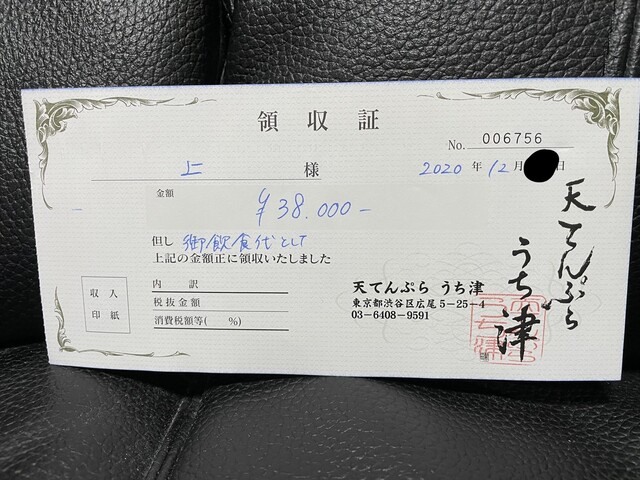 領収証
No. 006756
上 様
2020 年 12 月 日
金額
¥38.000-
但し 御飲食代として
上記の金額正に領収いたしました
収入
印紙
内 訳
税抜金額
消費税額等( %)
天てんぷら うち津
東京都渋谷区広尾5-25-4
03-6408-9591
天てんぷら
うち津